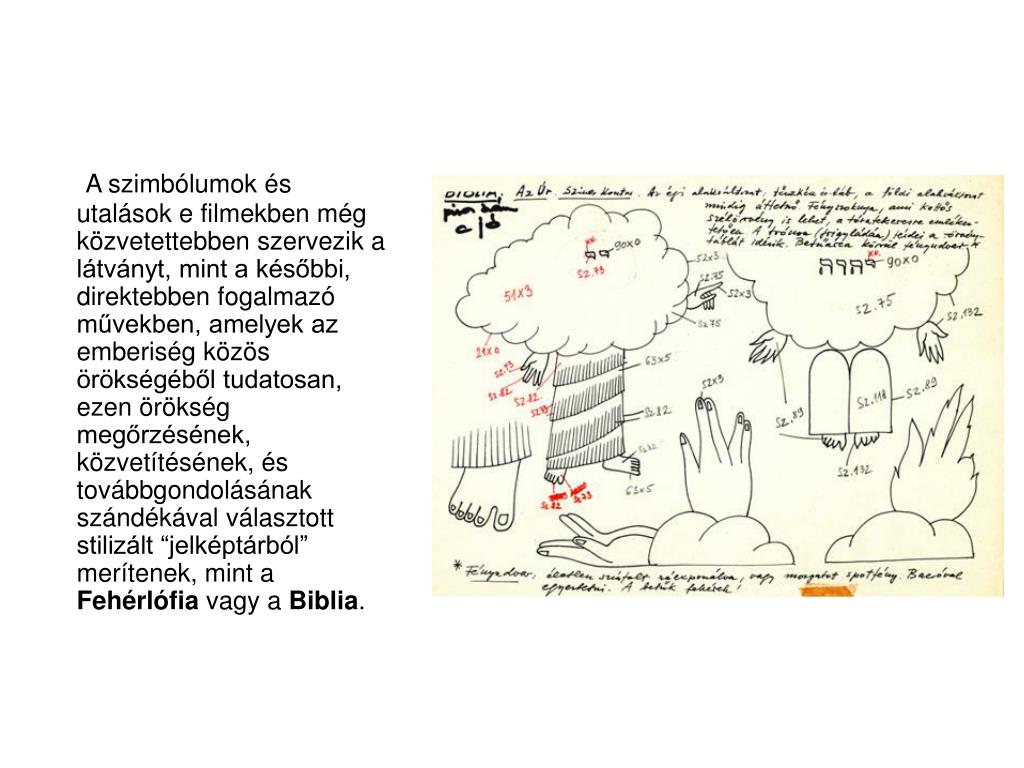 A szimbólumok és
utalások e filmekben még
közvetettebben szervezik a
látványt, mint a későbbi,
direktebben fogalmazó
művekben, amelyek az
emberiség közös
örökségéből tudatosan,
ezen örökség
megőrzésének,
közvetítésének, és
továbbgondolásának
szándékával választott
stilizált “jelképtárból”
merítenek, mint a
Fehérlófia vagy a Biblia.
BIBLIA. Az Úr. Színes kontu. Az égi alakváltozat: tűzkéz és -láb, a földi alakváltozat
mindig áttetsző. Fényszoknya, ami koltős
is lehet, a tóratekercsre emlékez-
tetően. A trónon (frigyládán) ülő a törvény-
táblát idézik. körül fényudvar *
XK.
90X0
SZ.73
51X3
52X3
SZ.75
52X3
SZ75
21X0
SZ.73
SZ.82
SZ.82.
SZ.73
63X5
SZ.82
SZ.82
63X5
SZ.82
SZ.73
52X3
XK.
יהוה
90X0
SZ.75
SZ.132
SZ.89
SZ.118
SZ.89
SZ.132
* Fényudvar: életlen ráexponálva, vagy mozgatott spotfény. Bacsóval
egyeztetni. A betűk fehérek!